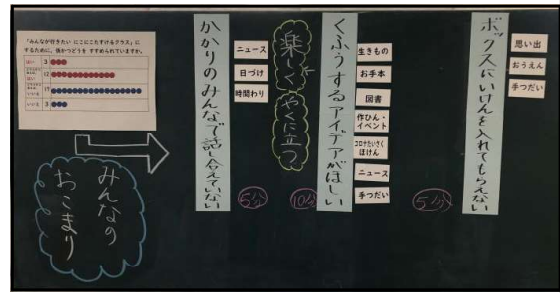 「みんなが行きたい にこにこたすけるクラス」に
するために、係かつどうを すすめられていますか。
はい 3
12
はい
17
いいえ
いいえ 3
みんなの
おこまり
かかりのみんなで話し合えていない
ニュース
日づけ
時間わり
5分
楽しく
やくに立つ
10分
くふうするアイデアがほしい
生きもの
お手本
図書
作ひん・
イベント
コロナたいさく
ほけん
ニュース
手つだい
5分
ボックスにいけんを入れてもらえない
思い出
おうえん
手つだい